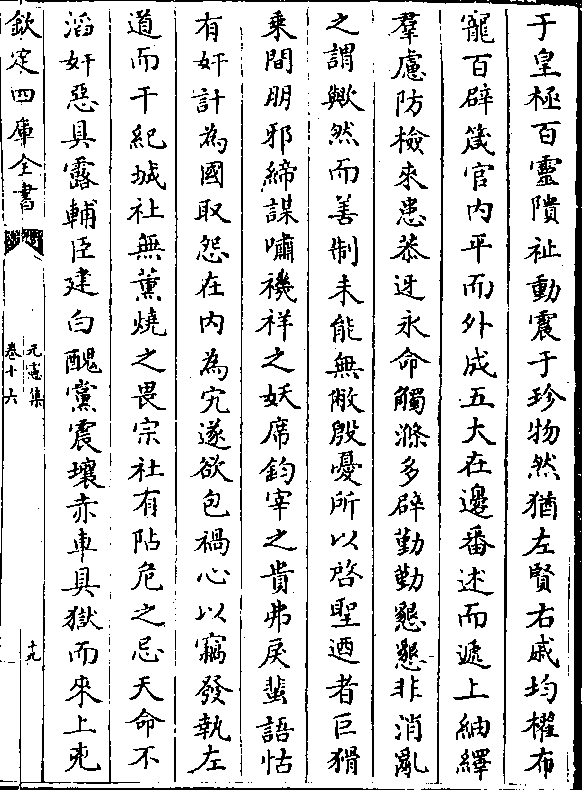 于皇極百靈隤祉動震于珍物然猶左賢右戚均權布
寵百辟箴官内平而外成五大在邊番述而遞上紬繹
羣慮防檢來患恭迓永命觸滌多辟勤勤懇懇非消亂
之謂歟然而善制未能無敝殷憂所以啓聖迺者巨猾
乗間朋邪締謀嘯禨祥之妖席鈞宰之貴弗戾蜚語怙
有奸計為國取怨在内為宄遂欲包禍心以竊發執左
道而干紀城社無薫燒之畏宗社有阽危之忌天命不
滔奸惡具露輔臣建白醜黨震壤赤車具獄而來上兇
欽定四庫全書
元憲集
卷十六
十九